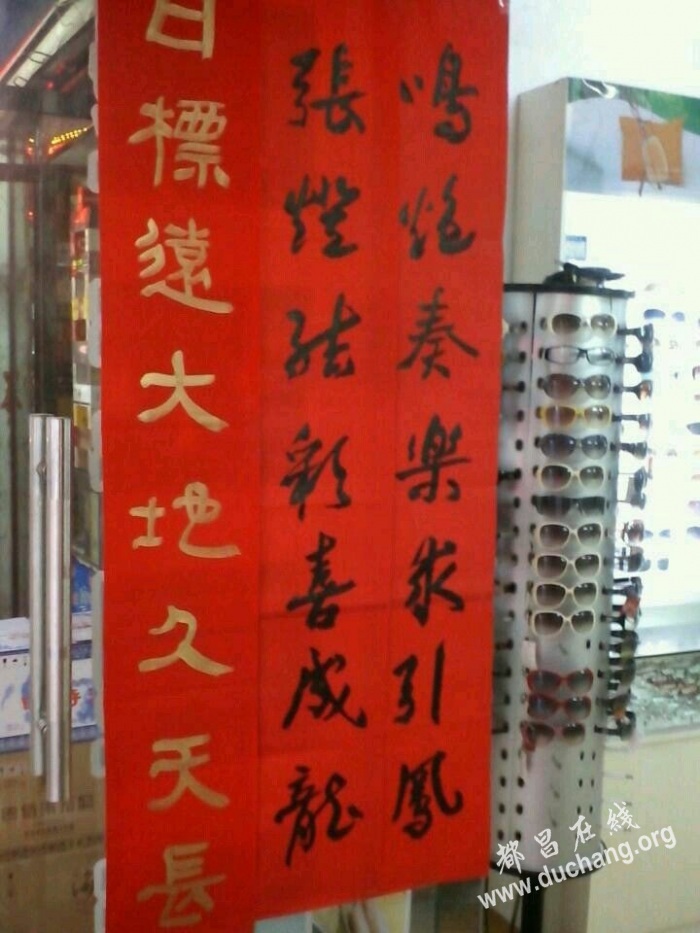 鳴炮奏樂求引鳳
張燈結彩喜成龍
目標遠大地久天長
都昌在線
www.duchang.org